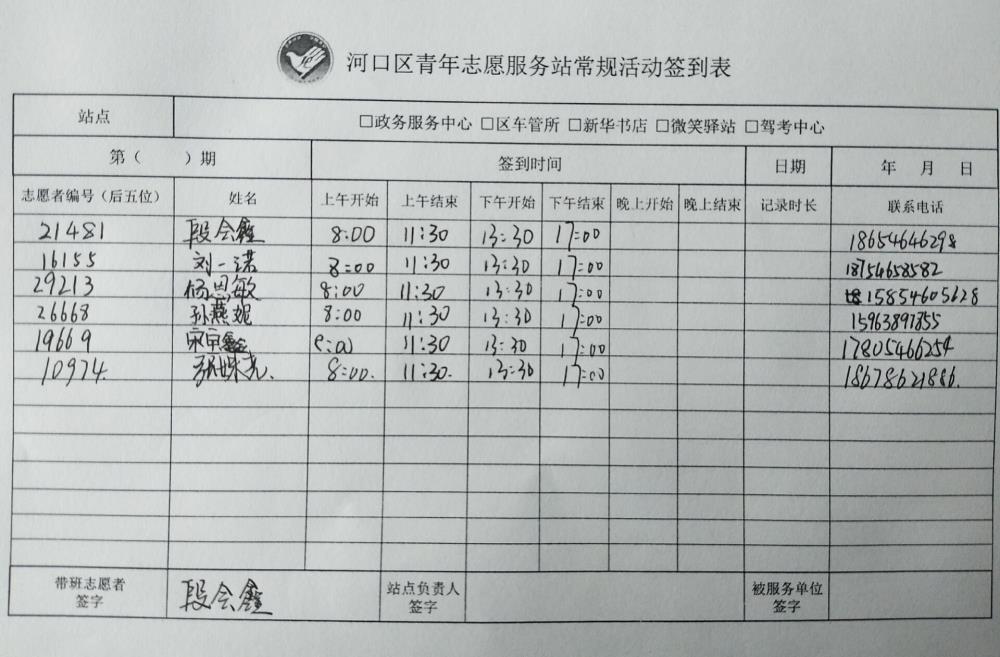 河口区青年志愿服务站常规活动签到表
站点 □政务服务中心 □区车管所 □新华书店 □微笑驿站 □驾考中心
第（ ）期 签到时间 日期 年 月 日
志愿者编号（后五位） 姓名 上午开始 上午结束 下午开始 下午结束 晚上开始 晚上结束 记录时长 联系电话
21481 段会鑫 8:00 11:30 13:30 17:00 18654646298
16155 刘一诺 8:00 11:30 13:30 17:00 18754658582
29213 杨思敏 8:00 11:30 13:30 17:00 15854605628
26668 孙燕妮 8:00 11:30 13:30 17:00 15963897855
19669 8:00 11:30 13:30 17:00 17805466254
10974. 8:00. 11:30. 13:30 17:00 18678621886.
带班志愿者签字 段会鑫 站点负责人签字 被服务单位签字